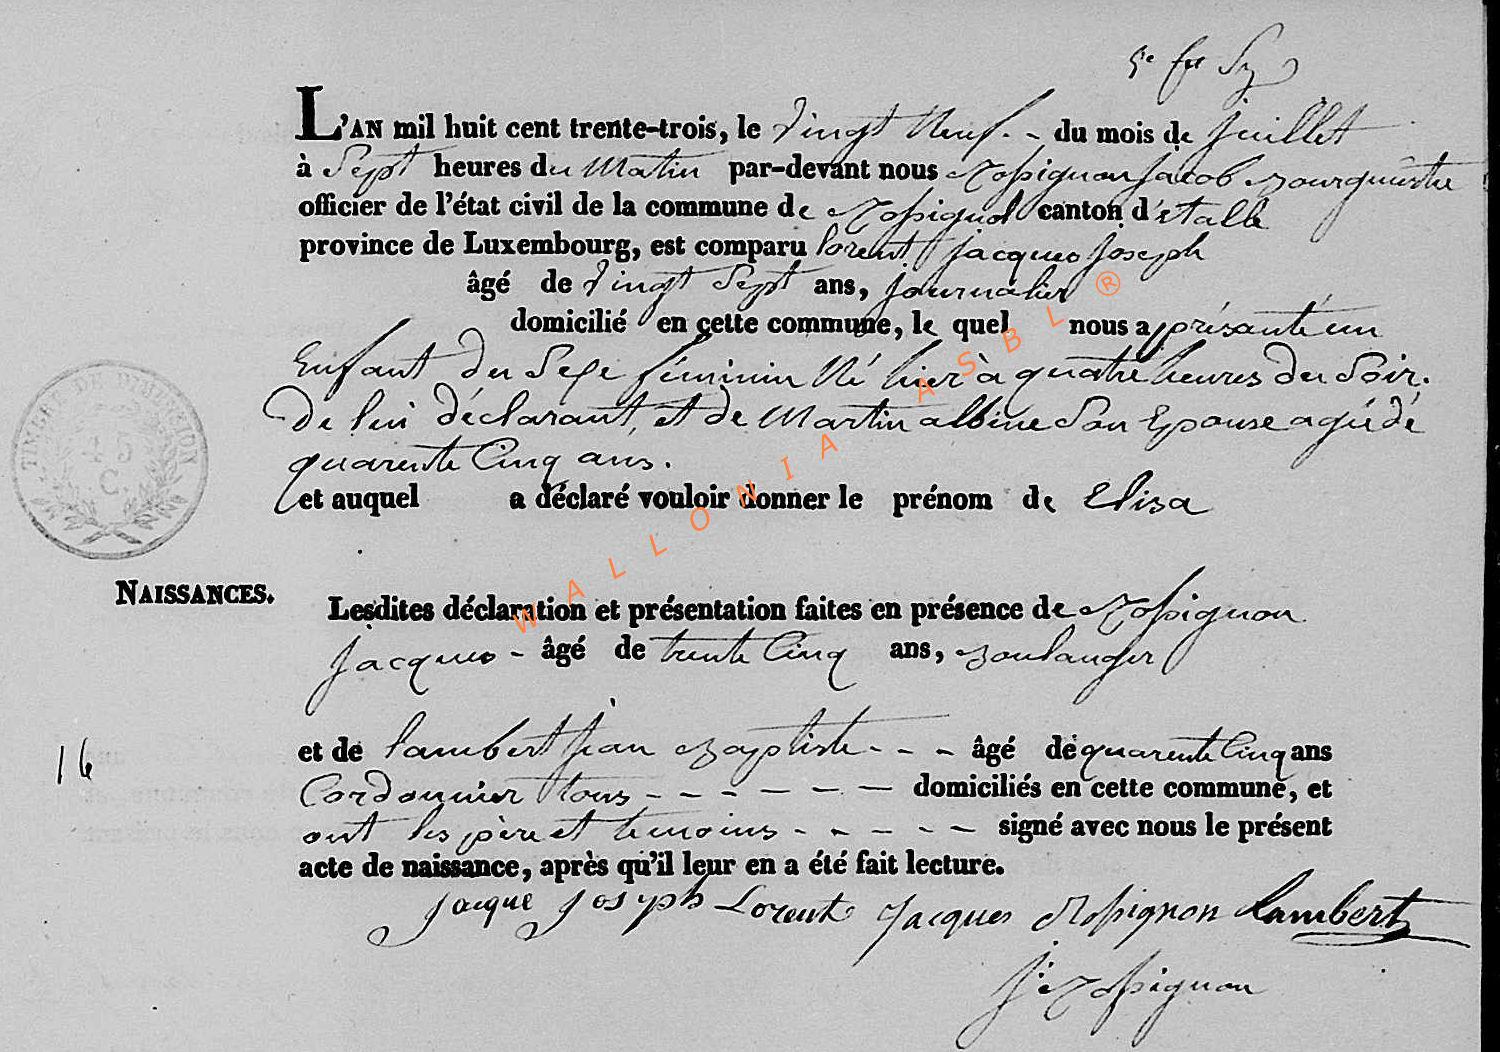 L'AN mil huit cent trente-trois, le Vingt Neuf - du mois de Juillet
à Sept heures du Matin par-devant nous Rossignon Jacob Bourguestre
officier de l'état civil de la commune de Rossignol canton d'Etalle
province de Luxembourg, est comparu lorent Jacques Joseph
âgé de Vingt Sept ans, journalier
domicilié en cette commune, le quel nous a présanté un
Enfant du Sexe féminin Né hier à quatre heures du Soir.
De lui déclarant, et de Martin albine Son Epouse agé de
quarente Cinq ans.
et auquel a déclaré vouloir donner le prénom de Elisa
TIMBRE DE DIMENSION
45
C.
NAISSANCES.
Lesdites déclaration et présentation faites en présence de Rossignon
Jacques - âgé de trente Cinq ans, Boulanger
16
et de lambert jean Baptiste - - - âgé de quarente Cinq ans
Cordonnier tous - - - - - - - domiciliés en cette commune, et
ont les père et temoins - - - - - signé avec nous le présent
acte de naissance, après qu'il leur en a été fait lecture.
jacque joseph Lorent Jacques Rossignon Lambert
J. Rossignon
WALLONIA ASBL ®